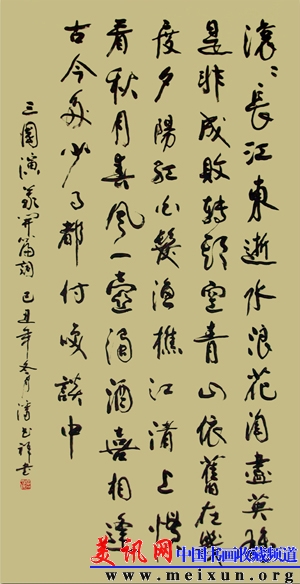 滚〻長江東逝水浪花淘盡英雄
是非成敗转頭空青山依舊在幾
度夕陽红白髮渔樵江渚上惯
看秋月春风一壶濁酒喜相逢
古今多少事都付笑談中
三國演義开篇词 己丑年冬月
美讯网 中国书画收藏频道
www.meixun.org